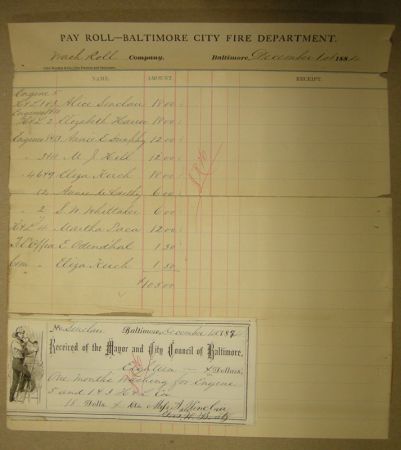 PAY ROLL—BALTIMORE CITY FIRE DEPARTMENT.
Wash Roll Company. Baltimore, December 1st 188
NAME. AMOUNT. RECEIPT.
Engine 5
H & L 1 & 3 Alice Sinclair 18 00
H & L 2 Elizabeth 18 00
Engine Annie E Murphy 12 00
M. J. Hill 12 00
4 6 & 9 Eliza Kirch 18 00
Annie 6 00
2 S. W. Whittaker 6 00
H & L 4 Martha 12 00
E. Odendhal 1 50
Eliza Kirch 1 50
$105 00
Mrs Sinclair Baltimore, December 1st 188
Received of the Mayor and City Council of Baltimore,
Eighteen Dollars,
One months Washing for Engine
5 and 1 & 3 H & L Co
18 Dolls Cts Mrs A Sinclair